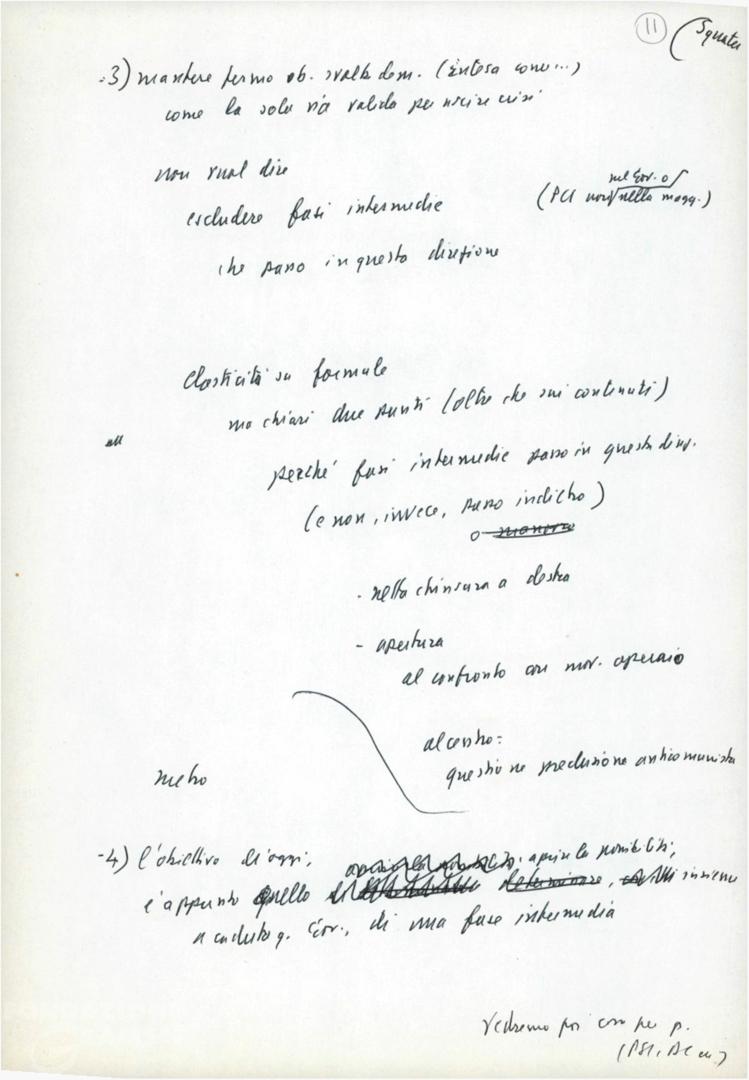 11
-3) mantere fermo ob. svolta dem. (intesa come...)
come la sola via valida per uscire crisi
non vuol dire
escludere fasi intermedie
nel Gov. o
(PCI non nella magg.)
che siano in questa direzione
Elasticità su formule
ma chiari due punti (oltre che sui contenuti)
perché fasi intermedie siano in questa
(e non, invece, passo indietro)
o
- nella chiusura a destra
- apertura
al confronto con mov. operaio
al centro:
questione preclusione anticomunista
metro
-4) l'obiettivo di oggi, aprire la possibilità,
è appunto quello insieme
a caduta q. Gov., di una fase intermedia
Vedremo poi
(PSI, DC